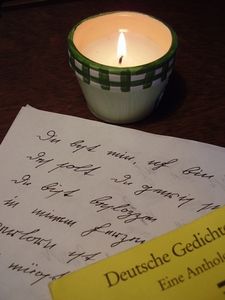 Du bist min, ich bin
Des solt Du gewis
Du bist beslozzen
in minem herzen
verlorn ist
Deutsche Gedichte
Eine Antholo